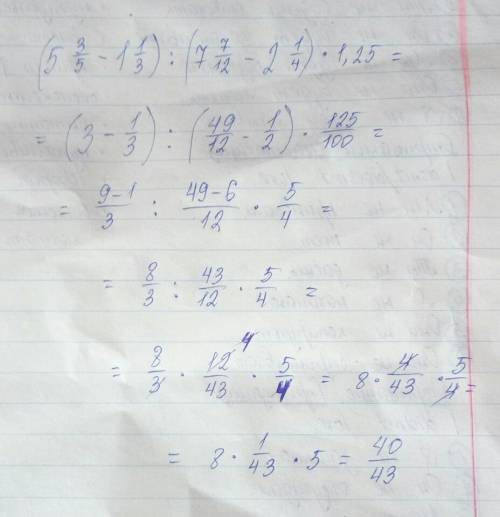 (5 3/5 - 1 1/3) : (7 7/12 - 2 1/4) · 1,25 =
= (3 - 1/3) : (49/12 - 1/2) · 125/100 =
= 9-1/3 : 49-6/12 · 5/4 =
= 8/3 : 43/12 · 5/4 =
= 8/3 · 12 4/43 · 5/4 = 8 · 4/43 · 5/4 =
= 8 · 1/43 · 5 = 40/43